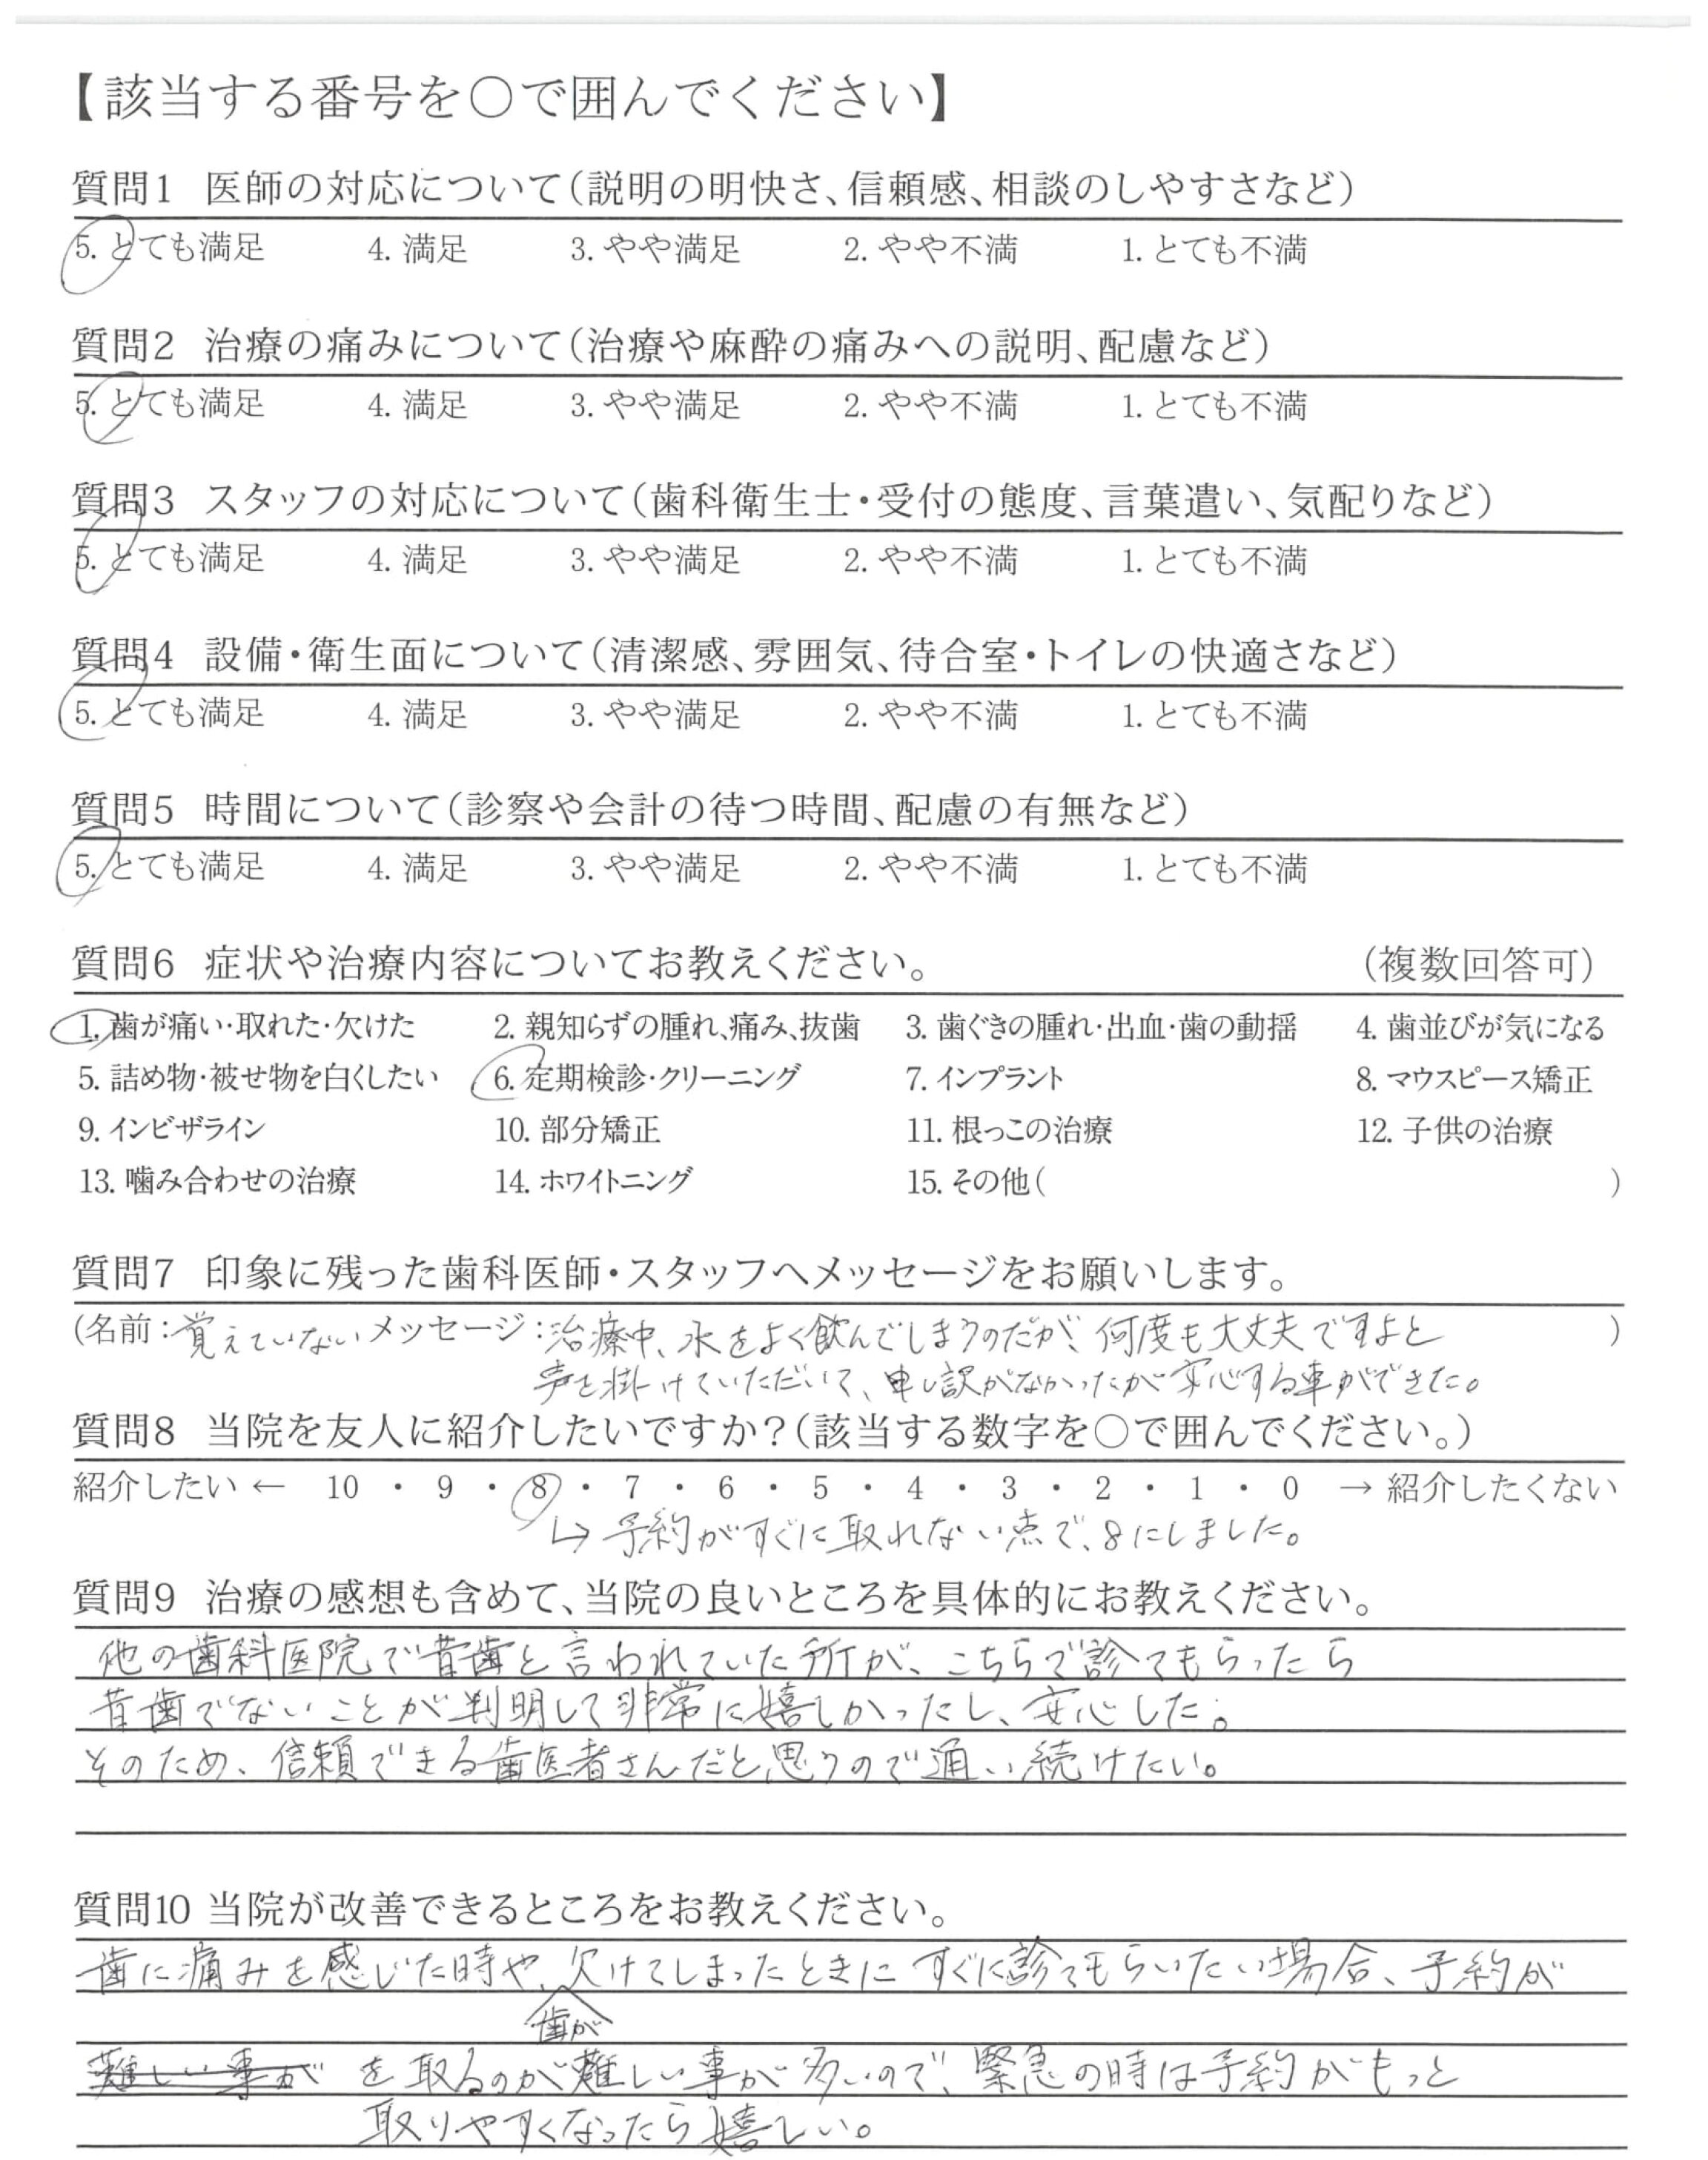 【該当する番号を○で囲んでください】
質問1 医師の対応について（説明の明快さ、信頼感、相談のしやすさなど）
5. とても満足 4. 満足 3. やや満足 2. やや不満 1. とても不満
質問2 治療の痛みについて（治療や麻酔の痛みへの説明、配慮など）
5. とても満足 4. 満足 3. やや満足 2. やや不満 1. とても不満
質問3 スタッフの対応について（歯科衛生士・受付の態度、言葉遣い、気配りなど）
5. とても満足 4. 満足 3. やや満足 2. やや不満 1. とても不満
質問4 設備・衛生面について（清潔感、雰囲気、待合室・トイレの快適さなど）
5. とても満足 4. 満足 3. やや満足 2. やや不満 1. とても不満
質問5 時間について（診察や会計の待つ時間、配慮の有無など）
5. とても満足 4. 満足 3. やや満足 2. やや不満 1. とても不満
質問6 症状や治療内容についてお教えください。 （複数回答可）
1. 歯が痛い・取れた・欠けた 2. 親知らずの腫れ、痛み、抜歯 3. 歯ぐきの腫れ・出血・歯の動揺 4. 歯並びが気になる
5. 詰め物・被せ物を白くしたい 6. 定期検診・クリーニング 7. インプラント 8. マウスピース矯正
9. インビザライン 10. 部分矯正 11. 根っこの治療 12. 子供の治療
13. 噛み合わせの治療 14. ホワイトニング 15. その他（ ）
質問7 印象に残った歯科医師・スタッフへメッセージをお願いします。
（名前：覚えていない メッセージ：治療中、水をよく飲んでしまうのだが、何度も大丈夫ですよと ）
声を掛けていただいて、申し訳がなかったが安心する事ができた。
質問8 当院を友人に紹介したいですか？（該当する数字を○で囲んでください。）
紹介したい ← 10 ・ 9 ・ 8 ・ 7 ・ 6 ・ 5 ・ 4 ・ 3 ・ 2 ・ 1 ・ 0 → 紹介したくない
↳ 予約がすぐに取れない点で、8にしました。
質問9 治療の感想も含めて、当院の良いところを具体的にお教えください。
他の歯科医院で昔歯と言われていた所が、こちらで診てもらったら
昔歯でないことが判明して非常に嬉しかったし、安心した。
そのため、信頼できる歯医者さんだと思うので通い続けたい。
質問10 当院が改善できるところをお教えください。
歯に痛みを感じた時や、欠けてしまったときにすぐに診てもらいたい場合、予約が
歯が
難しい事が を取るのが難しい事が多いので、緊急の時は予約がもっと
取りやすくなったら嬉しい。